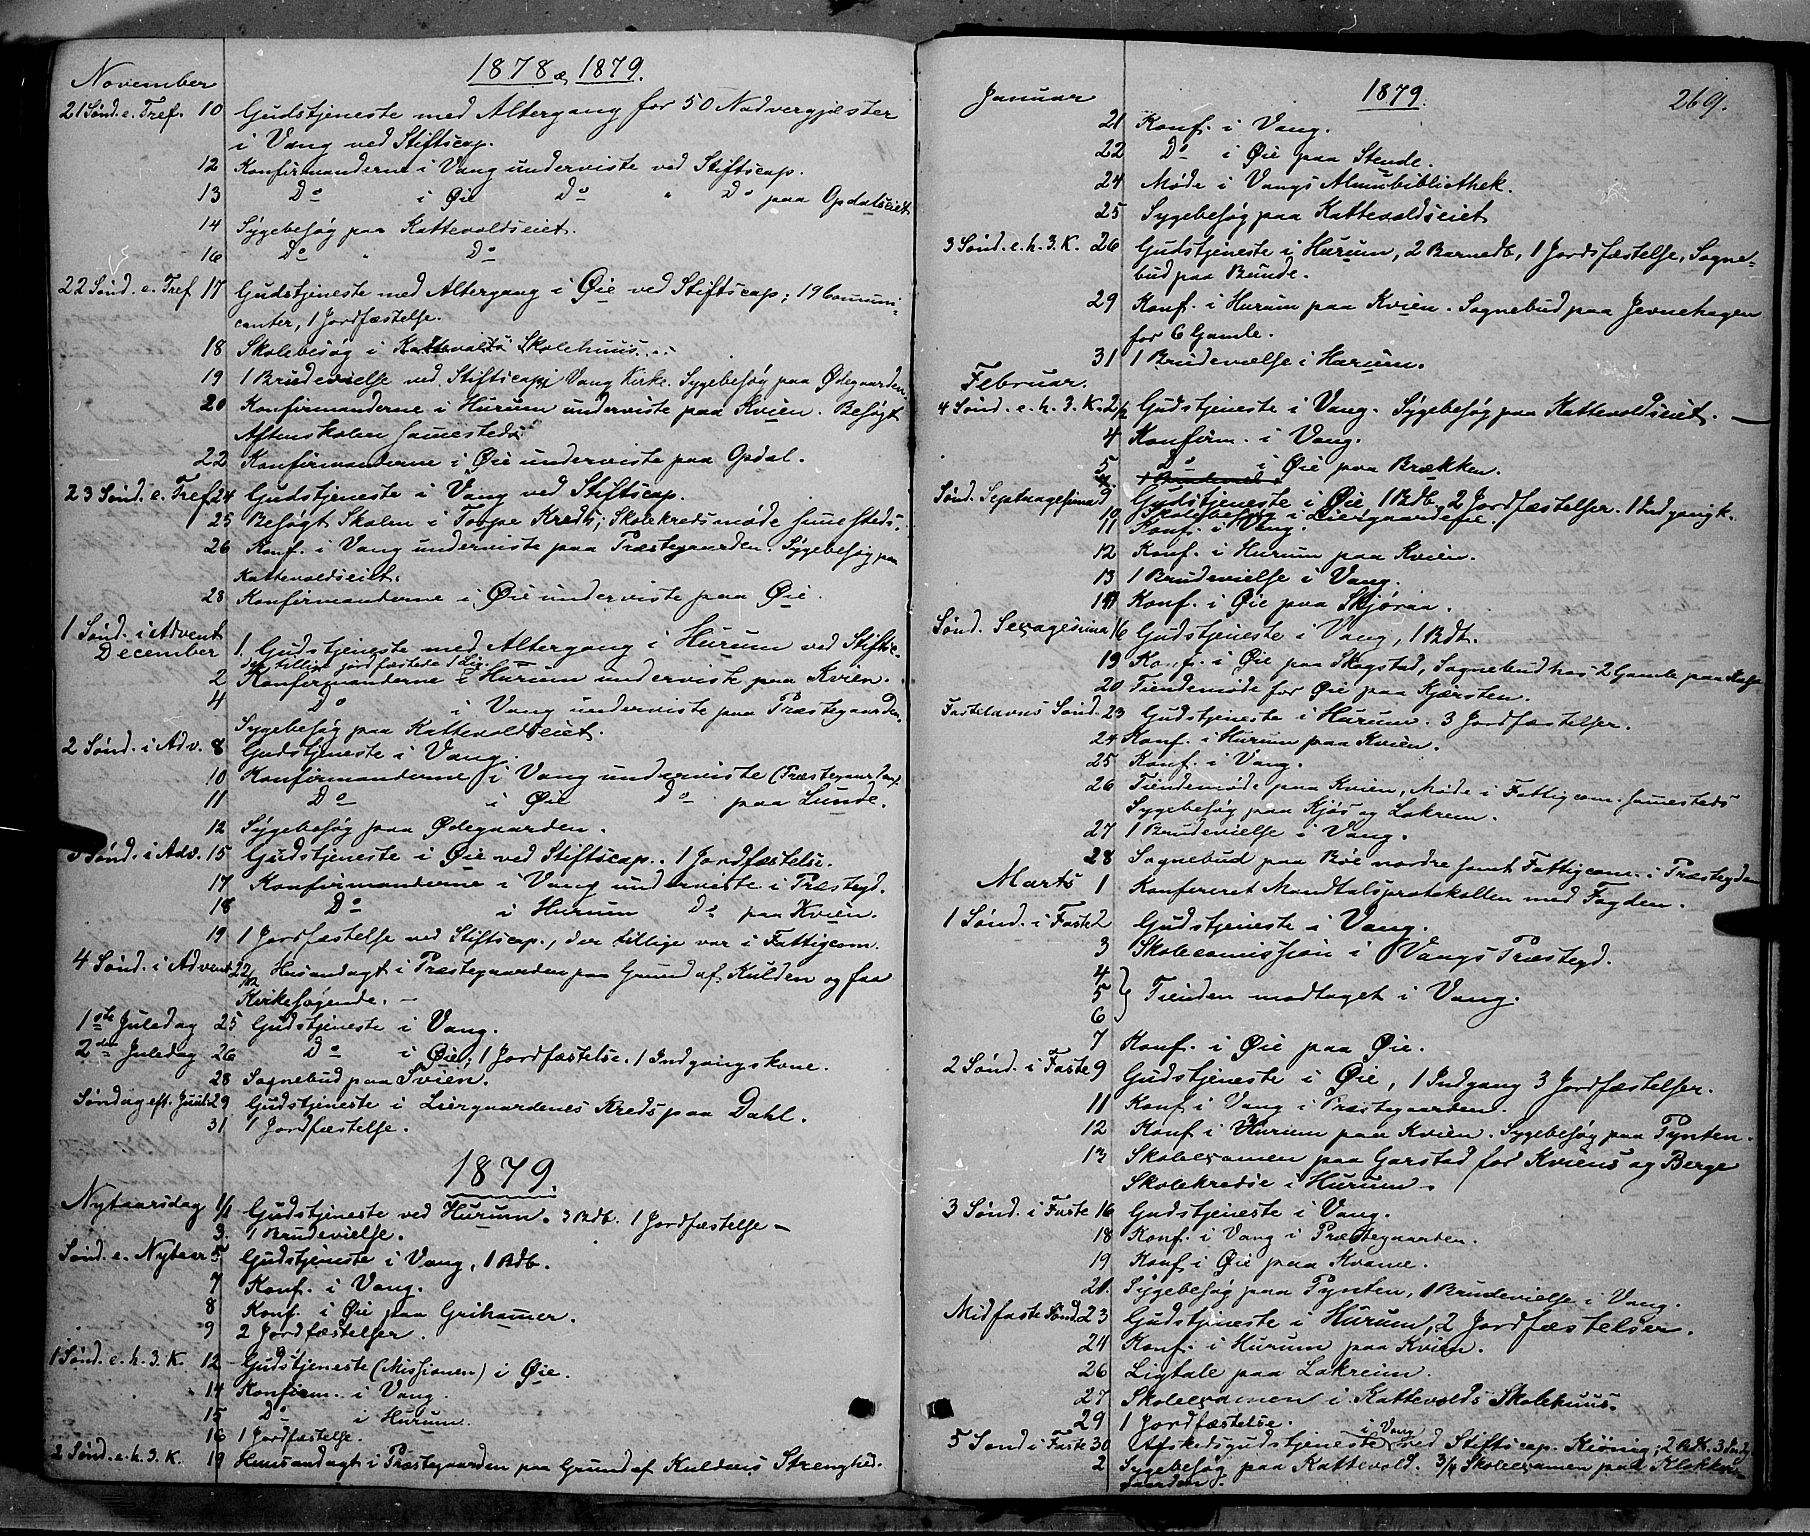 1878 & 1879.
November
21 Sønd. e. Tref. 10 Gudstjeneste med Altergang for 50 Nadvergjester
i Vang ved Stiftscap.
12 Konfirmanderne i Vang underviste ved Stiftscap.
13 Do i Øie Do " Do paa Opdalseiet
14 Sygebesøg paa Kattevoldseiet.
16 Do " Do
22 Sønd. e. Tref 17 Gudstjeneste med Altergang i Øie ved Stiftscap; 19 Communi-
canter, 1 Jordfæstelse.
18 Skolebesøg i Kattevolds Skolehuus.
19 1 Brudevielse ved Stiftscap i Vang Kirke. Sygebesøg paa Ødegaarden
20 Konfirmanderne i Hurum underviste paa Kvien. Besøgt
Aftenskolen sammesteds
22 Konfirmanderne i Øie underviste paa Opdal.
23 Sønd. e. Tref 24 Gudstjeneste i Vang ved Stiftscap.
25 Besøgt Skolen i Torpe Kreds; Skolekredsmøde sammesteds.
26 Konf. i Vang underviste paa Præstegaarden. Sygebesøg paa
Kattevoldseiet.
28 Konfirmanderne i Øie underviste paa Øie.
1 Sønd. i Advent
December 1. Gudstjeneste med Altergang i Hurum ved Stiftsc.
der tillige jordfæstede 1 Lig.
2 Konfirmanderne i Hurum underviste paa Kvien.
4 Do i Vang underviste paa Præstegaarden.
Sygebesøg paa Kattevoldseiet.
2 Sønd. i Adv. 8 Gudstjeneste i Vang.
10 Konfirmanderne i Vang underviste (Præstegaarden)
11 Do i Øie Do paa Lunde.
12 Sygebesøg paa Ødegaarden.
3 Sønd. i Adv. 15 Gudstjeneste i Øie ved Stiftscap. 1 Jordfæstelse.
17 Konfirmanderne i Vang underviste i Præstegd.
18 Do i Hurum Do paa Kvien.
19 1 Jordfæstelse ved Stiftscap., der tillige var i Fattigcom.
4 Sønd. i Advent 22/12 Husandagt i Præstegaarden paa Grund af Kulden og faa
Kirkesøgende. –
1ste Juledag 25 Gudstjeneste i Vang.
2den Juledag 26 Do i Øie; 1 Jordfæstelse. 1 Indgangskone.
28 Sognebud paa Svien.
Søndag eft. Juul 29 Gudstjeneste i Liergaardenes Kreds paa Dahl.
31 1 Jordfæstelse.
1879.
Nytaarsdag 1/1 Gudstjeneste ved Hurum. 3 Bdb. 1 Jordfæstelse –
3. 1 Brudevielse.
Sønd. e. Nytaar 5 Gudstjeneste i Vang, 1 Bdb.
7 Konf. i Vang.
8 Konf. i Øie paa Grihamer.
9 2 Jordfæstelser.
1 Sønd. e. h. 3. K. 12 Gudstjeneste (Missionen) i Øie.
14 Konfirm. i Vang.
15 Do i Hurum.
16 1 Jordfæstelse.
2 Sønd. e. h. 3. K. 19 Huusandagt i Præstegaarden paa Grund af Kuldens Strenghed.
1879.
269.
Januar
21 Konf. i Vang.
22 Do i Øie paa Stende.
24 Møde i Vangs Almuebibliothek.
25 Sygebesøg paa Kattevoldseiet
3 Sønd. e. h. 3. K. 26 Gudstjeneste i Hurum, 2 Barnedb, 1 Jordfæstelse, Sogne-
bud paa Bunde.
29 Konf. i Hurum paa Kvien. Sognebud paa Jevnehagen
for 6 Gamle.
31 1 Brudevielse i Hurum.
Februar.
4 Sønd. e. h. 3. K. 2/2 Gudstjeneste i Vang. Sygebesøg paa Kattevoldseiet.
4 Konfirm. i Vang.
5 Do i Øie paa Brækken.
Sønd. Septuagesima 9 Gudstjeneste i Øie 1 Bdb, 2 Jordfæstelser. 1 Indgangk.
10 Skolebesøg i Liergaardene.
11 Konf. i Vang.
12 Konf. i Hurum paa Kvien.
13 1 Brudevielse i Vang.
14 Konf. i Øie paa Skjøraa.
Sønd. Sexagesima 16 Gudstjeneste i Vang, 1 Bdt.
19 Konf. i Øie paa Skogstad, Sognebud hos 2 Gamle paa
20 Tiendemøde for Øie paa Kjærsten.
Fastelavns Sønd. 23 Gudstjeneste i Hurum. 3 Jordfæstelser.
24 Konf. i Hurum paa Kvien.
25 Konf. i Vang.
26 Tiendemøde paa Kvien, Møde i Fattigcom. sammesteds
Sygebesøg paa Kjøs og Lokrem.
27 1 Brudevielse i Vang.
28 Sognebud paa Bøe nordre samt Fattigcom. i Præstegden
Marts 1 Konfereret Mandtalsprotokollen med Fogden.
1 Sønd. i Faste 2 Gudstjeneste i Vang.
3 Skolecomission i Vangs Præstegd.
4
5 } Tienden modtaget i Vang.
6
7 Konf. i Øie paa Øie.
2 Sønd. i Faste 9 Gudstjeneste i Øie, 1 Indgang 3 Jordfæstelser.
11 Konf. i Vang i Præstegaarden.
12 Konf i Hurum paa Kvien. Sygebesøg paa Tynten.
13 Skolexamen paa Garstad for Kviens og Berge
Skolekredse i Hurum.
3 Sønd. i Faste 16 Gudstjeneste i Vang.
18 Konf. i Vang i Præstegaarden.
19 Konf i Øie paa Kvame.
21. Sygebesøg paa Tynten, 1 Brudevielse i Vang.
Midfaste Sønd. 23 Gudstjeneste i Hurum, 2 Jordfæstelser.
24 Konf. i Hurum paa Kvien.
26 Ligtale paa Lokreim.
27 Skolexamen i Kattevolds Skolehuus.
29 1 Jordfæstelse.
5 Sønd i Faste 30 Afskedsgudstjeneste i Vang ved Stiftscap. Kiønig; 2 Bdb. 3
2 Sygebesøg paa Kattevold. 3/4 Skolexamen paa